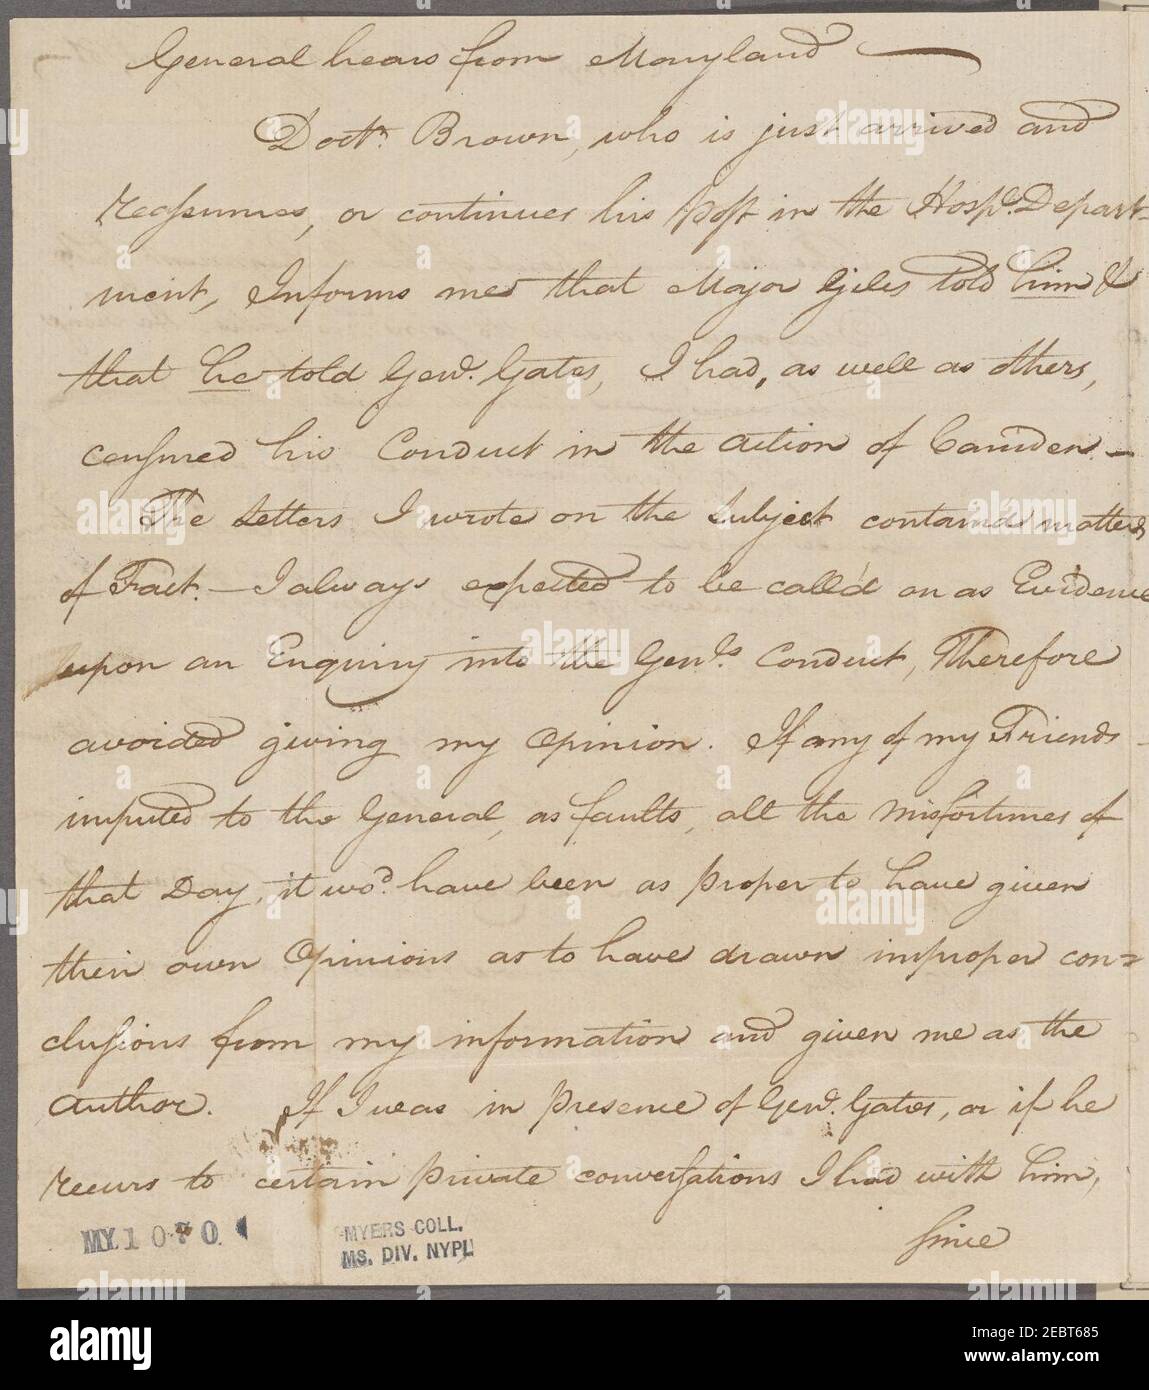 General hears from Maryland
Doctr. Brown, who is just arrived and
reassumes, or continues his post in the Hospl. Depart-
ment, Informs me that Major Giles told him &
that he told Genl. Gates, I had, as well as others,
censured his Conduct in the action of Camden.—
The Letters I wrote on the subject contained matters
of Fact.—I always expected to be call'd on as Evidence
upon an Enquiry into the Genls. Conduct, Therefore
avoided giving my Opinion. If any of my Friends
imputed to the General, as faults, all the Misfortunes of
that Day, it wod. have been as proper to have given
their own Opinions as to have drawn improper con=
clusions from my information and given me as the
author. If I was in presence of Genl. Gates, or if he
recurs to certain private conversations I had with him,
since
MYERS COLL.
MS. DIV. NYPL
alamy
Image ID: 2EBT685
www.alamy.com